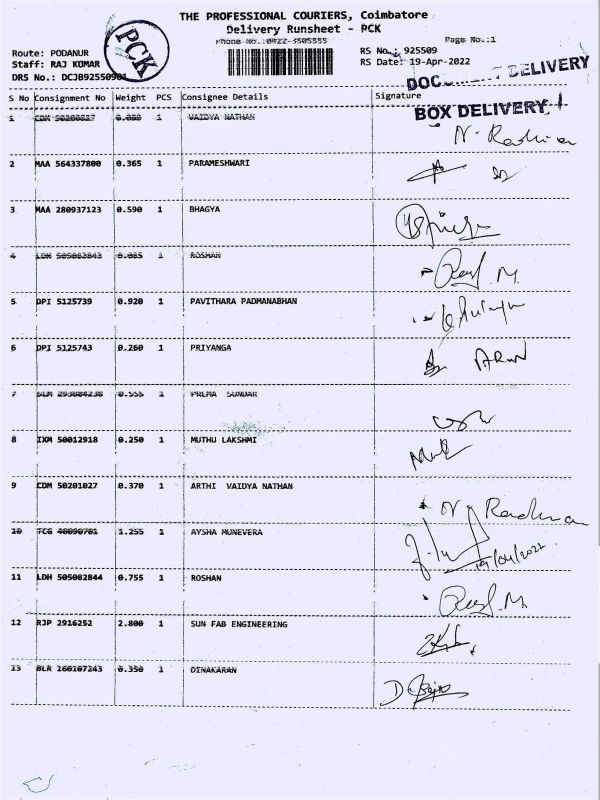 THE PROFESSIONAL COURIERS, Coimbatore
Delivery Runsheet - PCK
Phone No.:0422-3505555 Page No.:1
Route: PODANUR RS No.: 925509
Staff: RAJ KUMAR RS Date: 19-Apr-2022
DRS No.: DCJB92550901
PCK
DOCUMENT DELIVERY
BOX DELIVERY
S No Consignment No Weight PCS Consignee Details Signature
1 CDM 1 VAIDYA NATHAN N. Radhna
2 MAA 564337800 0.365 1 PARAMESHWARI
3 MAA 280937123 0.590 1 BHAGYA
4 LDH 505082843 0.085 1 ROSHAN M.
5 DPI 5125739 0.920 1 PAVITHARA PADMANABHAN
6 DPI 5125743 0.260 1 PRIYANGA ARUN
7 0.555 1 PREMA SUNDAR
8 IXM 50012918 0.250 1 MUTHU LAKSHMI
9 CDM 50201027 0.370 1 ARTHI VAIDYA NATHAN N Radhna
10 TCG 1.255 1 AYSHA MUNEVERA 19/04/2022
11 LDH 505082844 0.755 1 ROSHAN M.
12 RJP 2916252 2.800 1 SUN FAB ENGINEERING
13 BLR 160107243 0.350 1 DINAKARAN